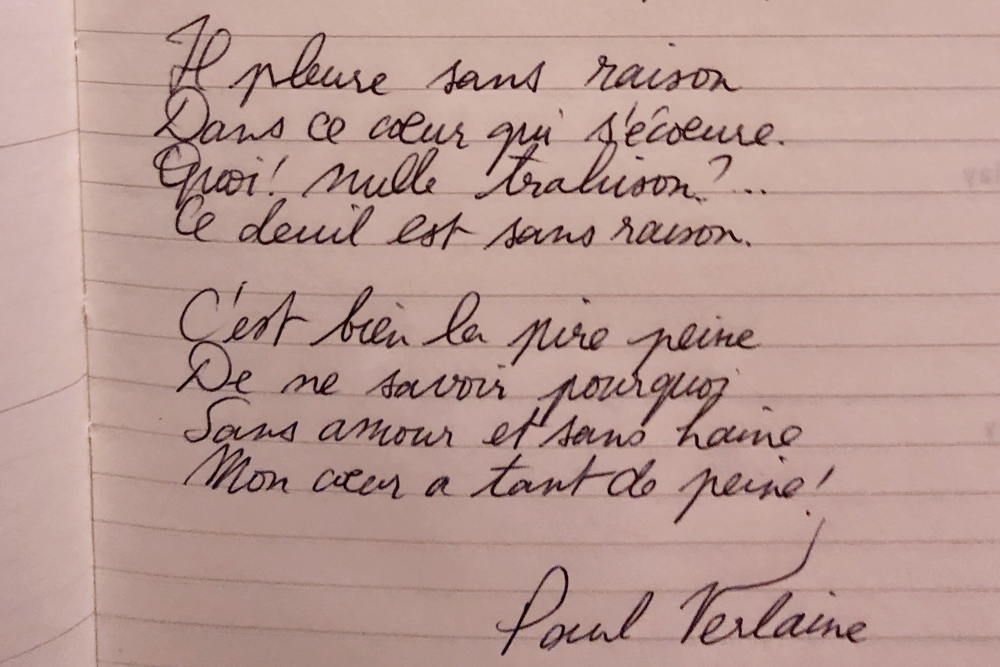 Il pleure sans raison
Dans ce cœur qui s'écœure.
Quoi! nulle trahison?...
Ce deuil est sans raison.
C'est bien la pire peine
De ne savoir pourquoi
Sans amour et sans haine
Mon cœur a tant de peine!
Paul Verlaine